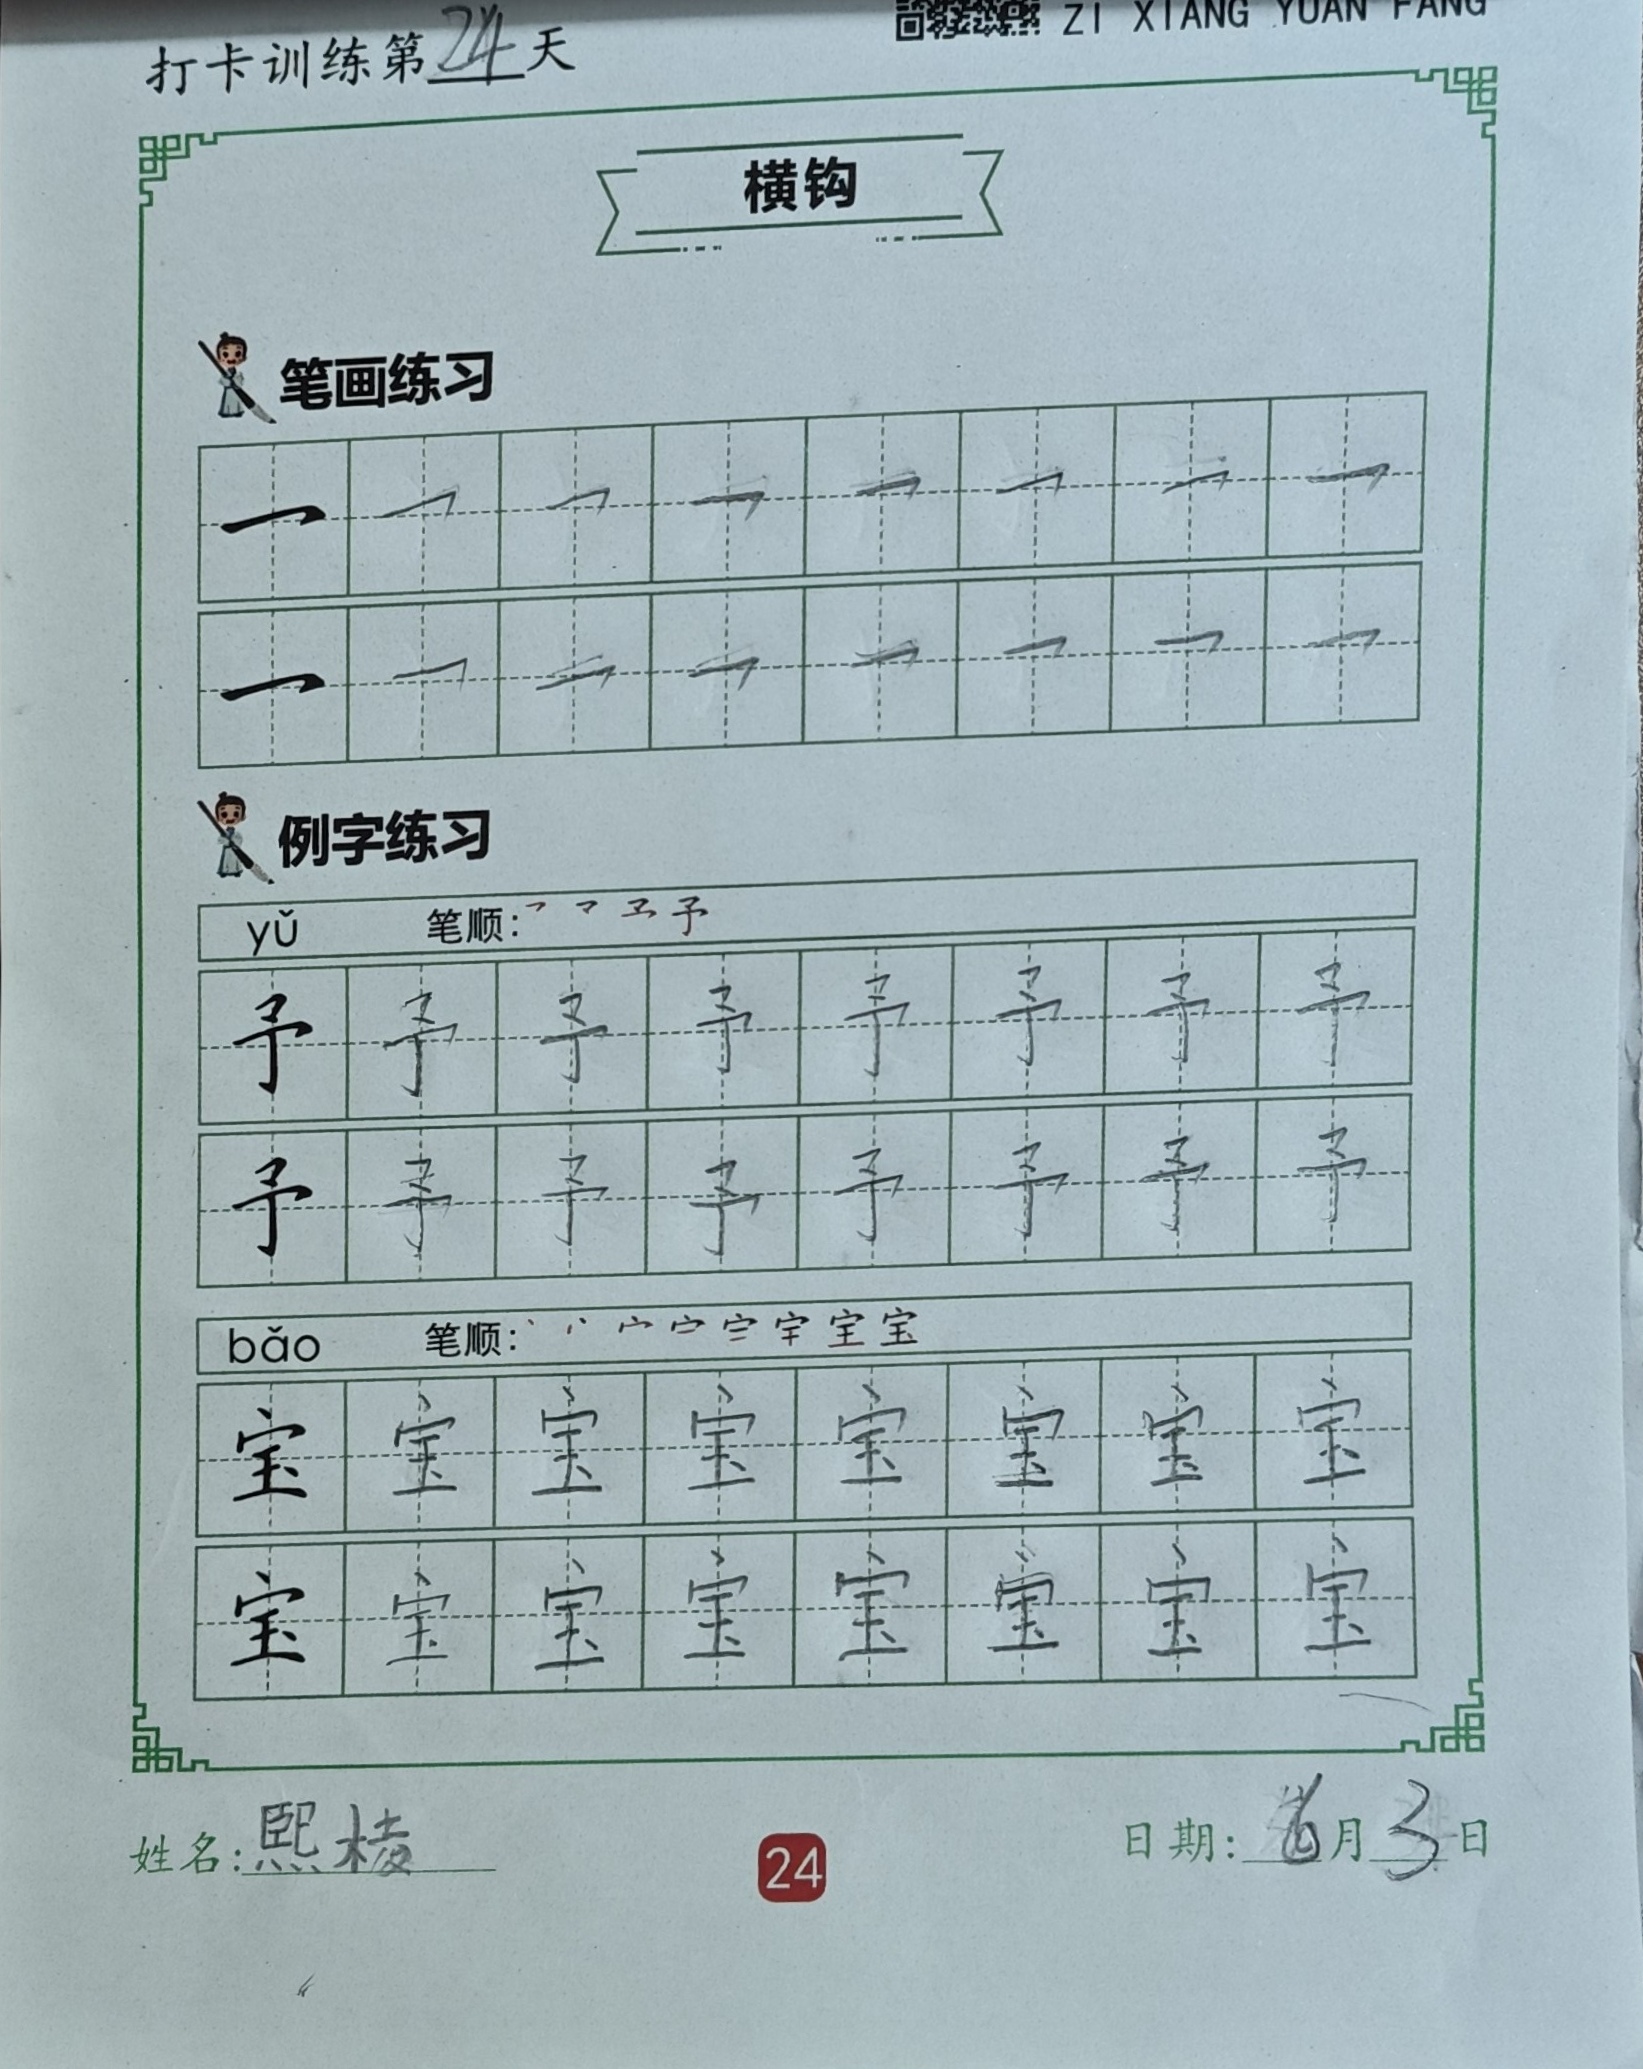 ZI XIANG YUAN FANG
打卡训练第24天
横钩
笔画练习
㇖ ㇖ ㇖ ㇖ ㇖ ㇖ ㇖ ㇖
㇖ ㇖ ㇖ ㇖ ㇖ ㇖ ㇖ ㇖
例字练习
yǔ 笔顺: 予
予 予 予 予 予 予 予 予
予 予 予 予 予 予 予 予
bǎo 笔顺: 宝
宝 宝 宝 宝 宝 宝 宝 宝
宝 宝 宝 宝 宝 宝 宝 宝
姓名: 熙棱 24 日期: 6月3日